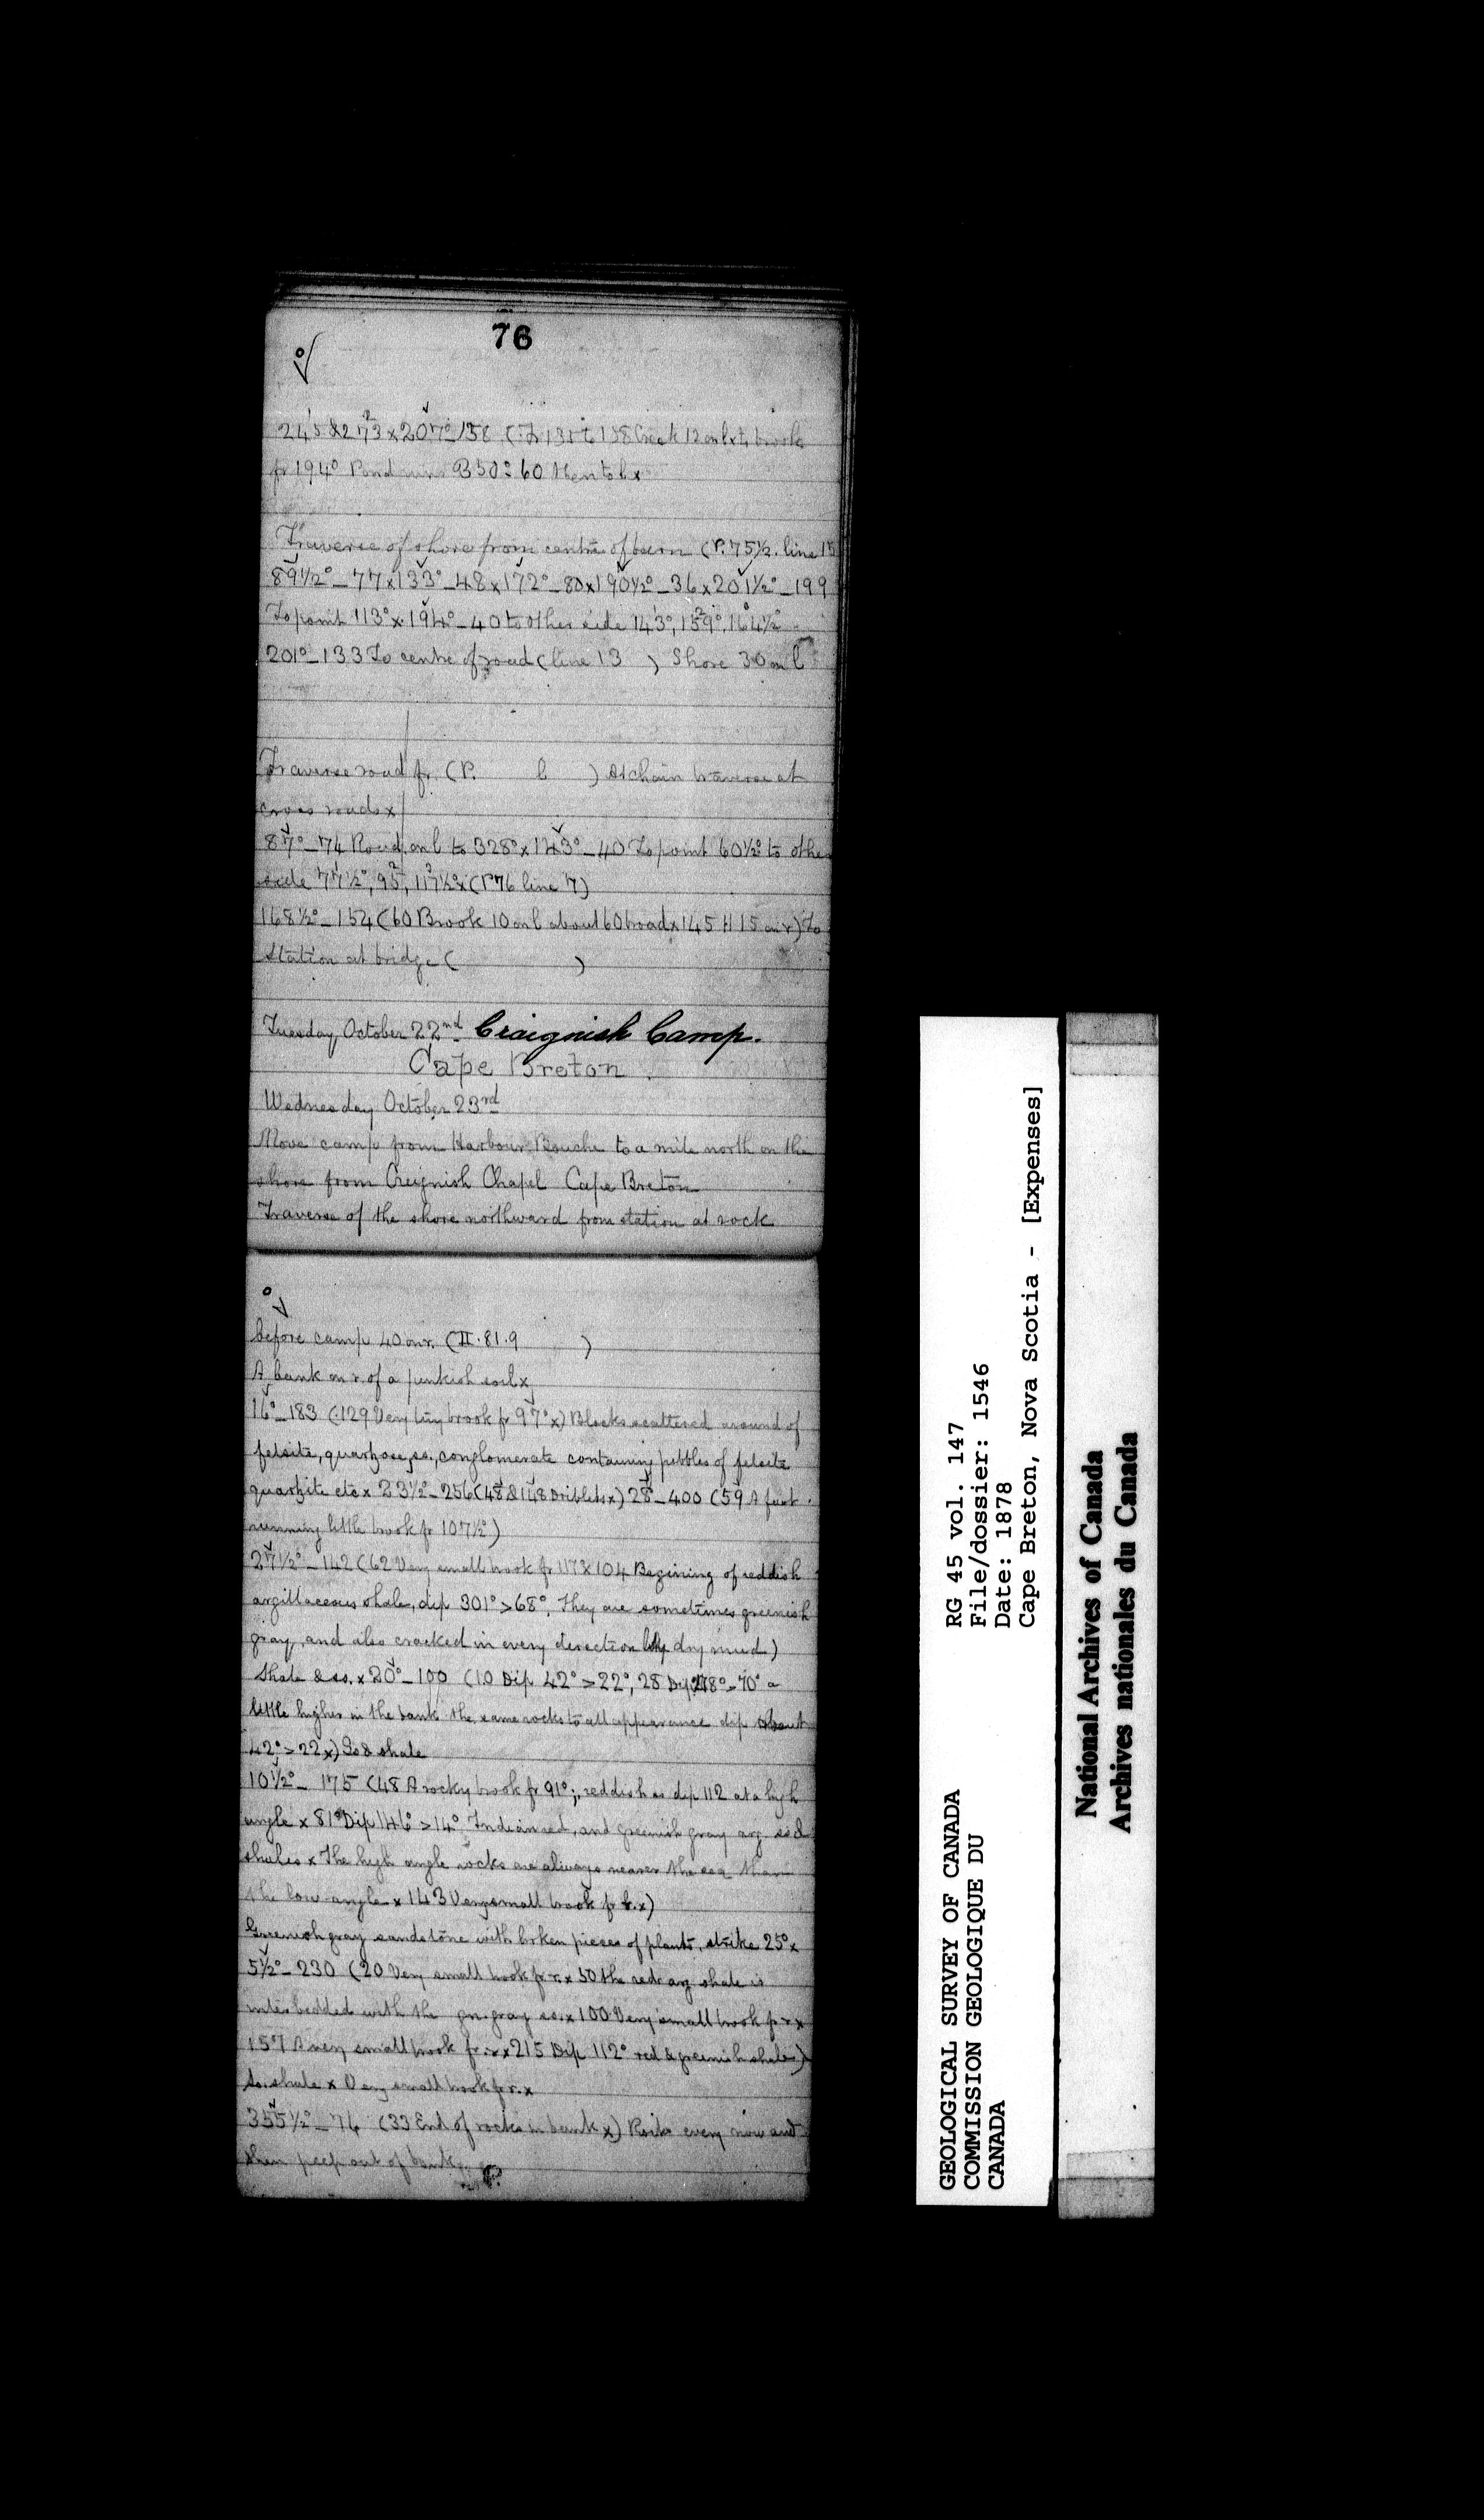 76
245 & 273 x 207°_138 ( 135 to 138 Creek 12 on l x to brook
fr 194° Pond B50°= 60 Then to l x
Traverse of shore from centre of barn (P. 75½. line 15
89½°_77 x 133°_48 x 172°_80 x 190½°_36 x 201½°_199
To point 113° x 194°_40 to other side 143°, 159°, 164½°
201°_133 To centre of road (line 13 ) Shore 30 on l
Traverse road fr. (P. l ) At chain traverse at
cross roads x
87°_74 Road on l to 328° x 143°_40 To point 60½° to other
side 77½°, 95, 117½° x (P 76 line 7)
168½°_154 (60 Brook 10 on l about 60 broad x 145 H 15 on r) To
Station at bridge ( )
Tuesday, October 22nd. Craignish Camp.
Cape Breton.
Wednesday October 23rd
Move camp from Harbour Bouche to a mile north on the
shore from Creignish Chapel Cape Breton
Traverse of the shore northward from station at rock
before camp 40 on r. (II. 81. 9 )
A bank on r. of a pinkish soil x
16°_183 (129 Very tiny brook fr 97° x) Blocks scattered around of
felsite, quartzose, ss., conglomerate containing pebbles of felsite
quartzite etc x 23½°_256 (48 & 148 Driblets x) 28°_400 (59 A fast
running little brook fr 107½°)
27½°_142 (62 Very small brook fr 117 x 104 Begining of reddish
argillaceous shale, dip 301° > 68°. They are sometimes greenish
gray, and also cracked in every direction like dry mud)
Shale & ss. x 20°_100 (10 Dip 42° > 22°, 28 Dip 278° > 70° a
little higher in the bank the same rocks to all appearance dip about
42° > 22 x) Ss & shale
10½°_175 (48 A rocky brook fr 91°; reddish ss dip 112 at a high
angle x 81° Dip 146° > 14° Indian red, and greenish gray arg. ss &
shales x The high angle rocks are always nearer the sea than
the low-angle x 143 Very small brook fr r. x)
Greenish gray sandstone with broken pieces of plants, strike 25° x
5½°_230 (20 Very small brook fr r. x 50 the red arg shale is
interbedded with the gn. gray ss. x 100 Very small brook fr r x
157 A very small brook fr. r x 215 Dip 112° red & greenish shales)
Ss. shale x Very small brook fr r. x
355½°_76 (33 End of rocks in bank x) Rocks every now and
then peep out of bank.
P.
GEOLOGICAL SURVEY OF CANADA
COMMISSION GEOLOGIQUE DU
CANADA
RG 45 vol. 147
File/dossier: 1546
Date: 1878
Cape Breton, Nova Scotia - [Expenses]
National Archives of Canada
Archives nationales du Canada